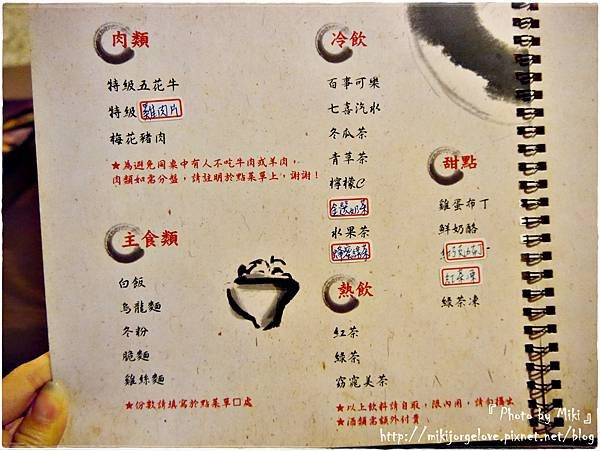 肉類
特級五花牛
特級雞肉片
梅花豬肉
★為避免同桌中有人不吃牛肉或羊肉，
肉類如需分盤，請註明於點菜單上，謝謝！
主食類
白飯
烏龍麵
冬粉
脆麵
雞絲麵
★份數請填寫於點菜單□處
冷飲
百事可樂
七喜汽水
冬瓜茶
青草茶
檸檬C
水果茶
熱飲
紅茶
綠茶
窈窕美茶
★以上飲料請自取，限內用，請勿攜出
★酒類需額外付費
甜點
雞蛋布丁
鮮奶酪
紅茶凍
綠茶凍
『 Photo by Miki 』
http://mikijorgelove.pixnet.net/blog